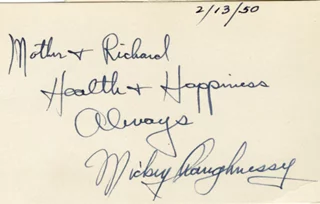 2/13/50
Mother + Richard
Health + Happiness
Always
Mickey Shaughnessy